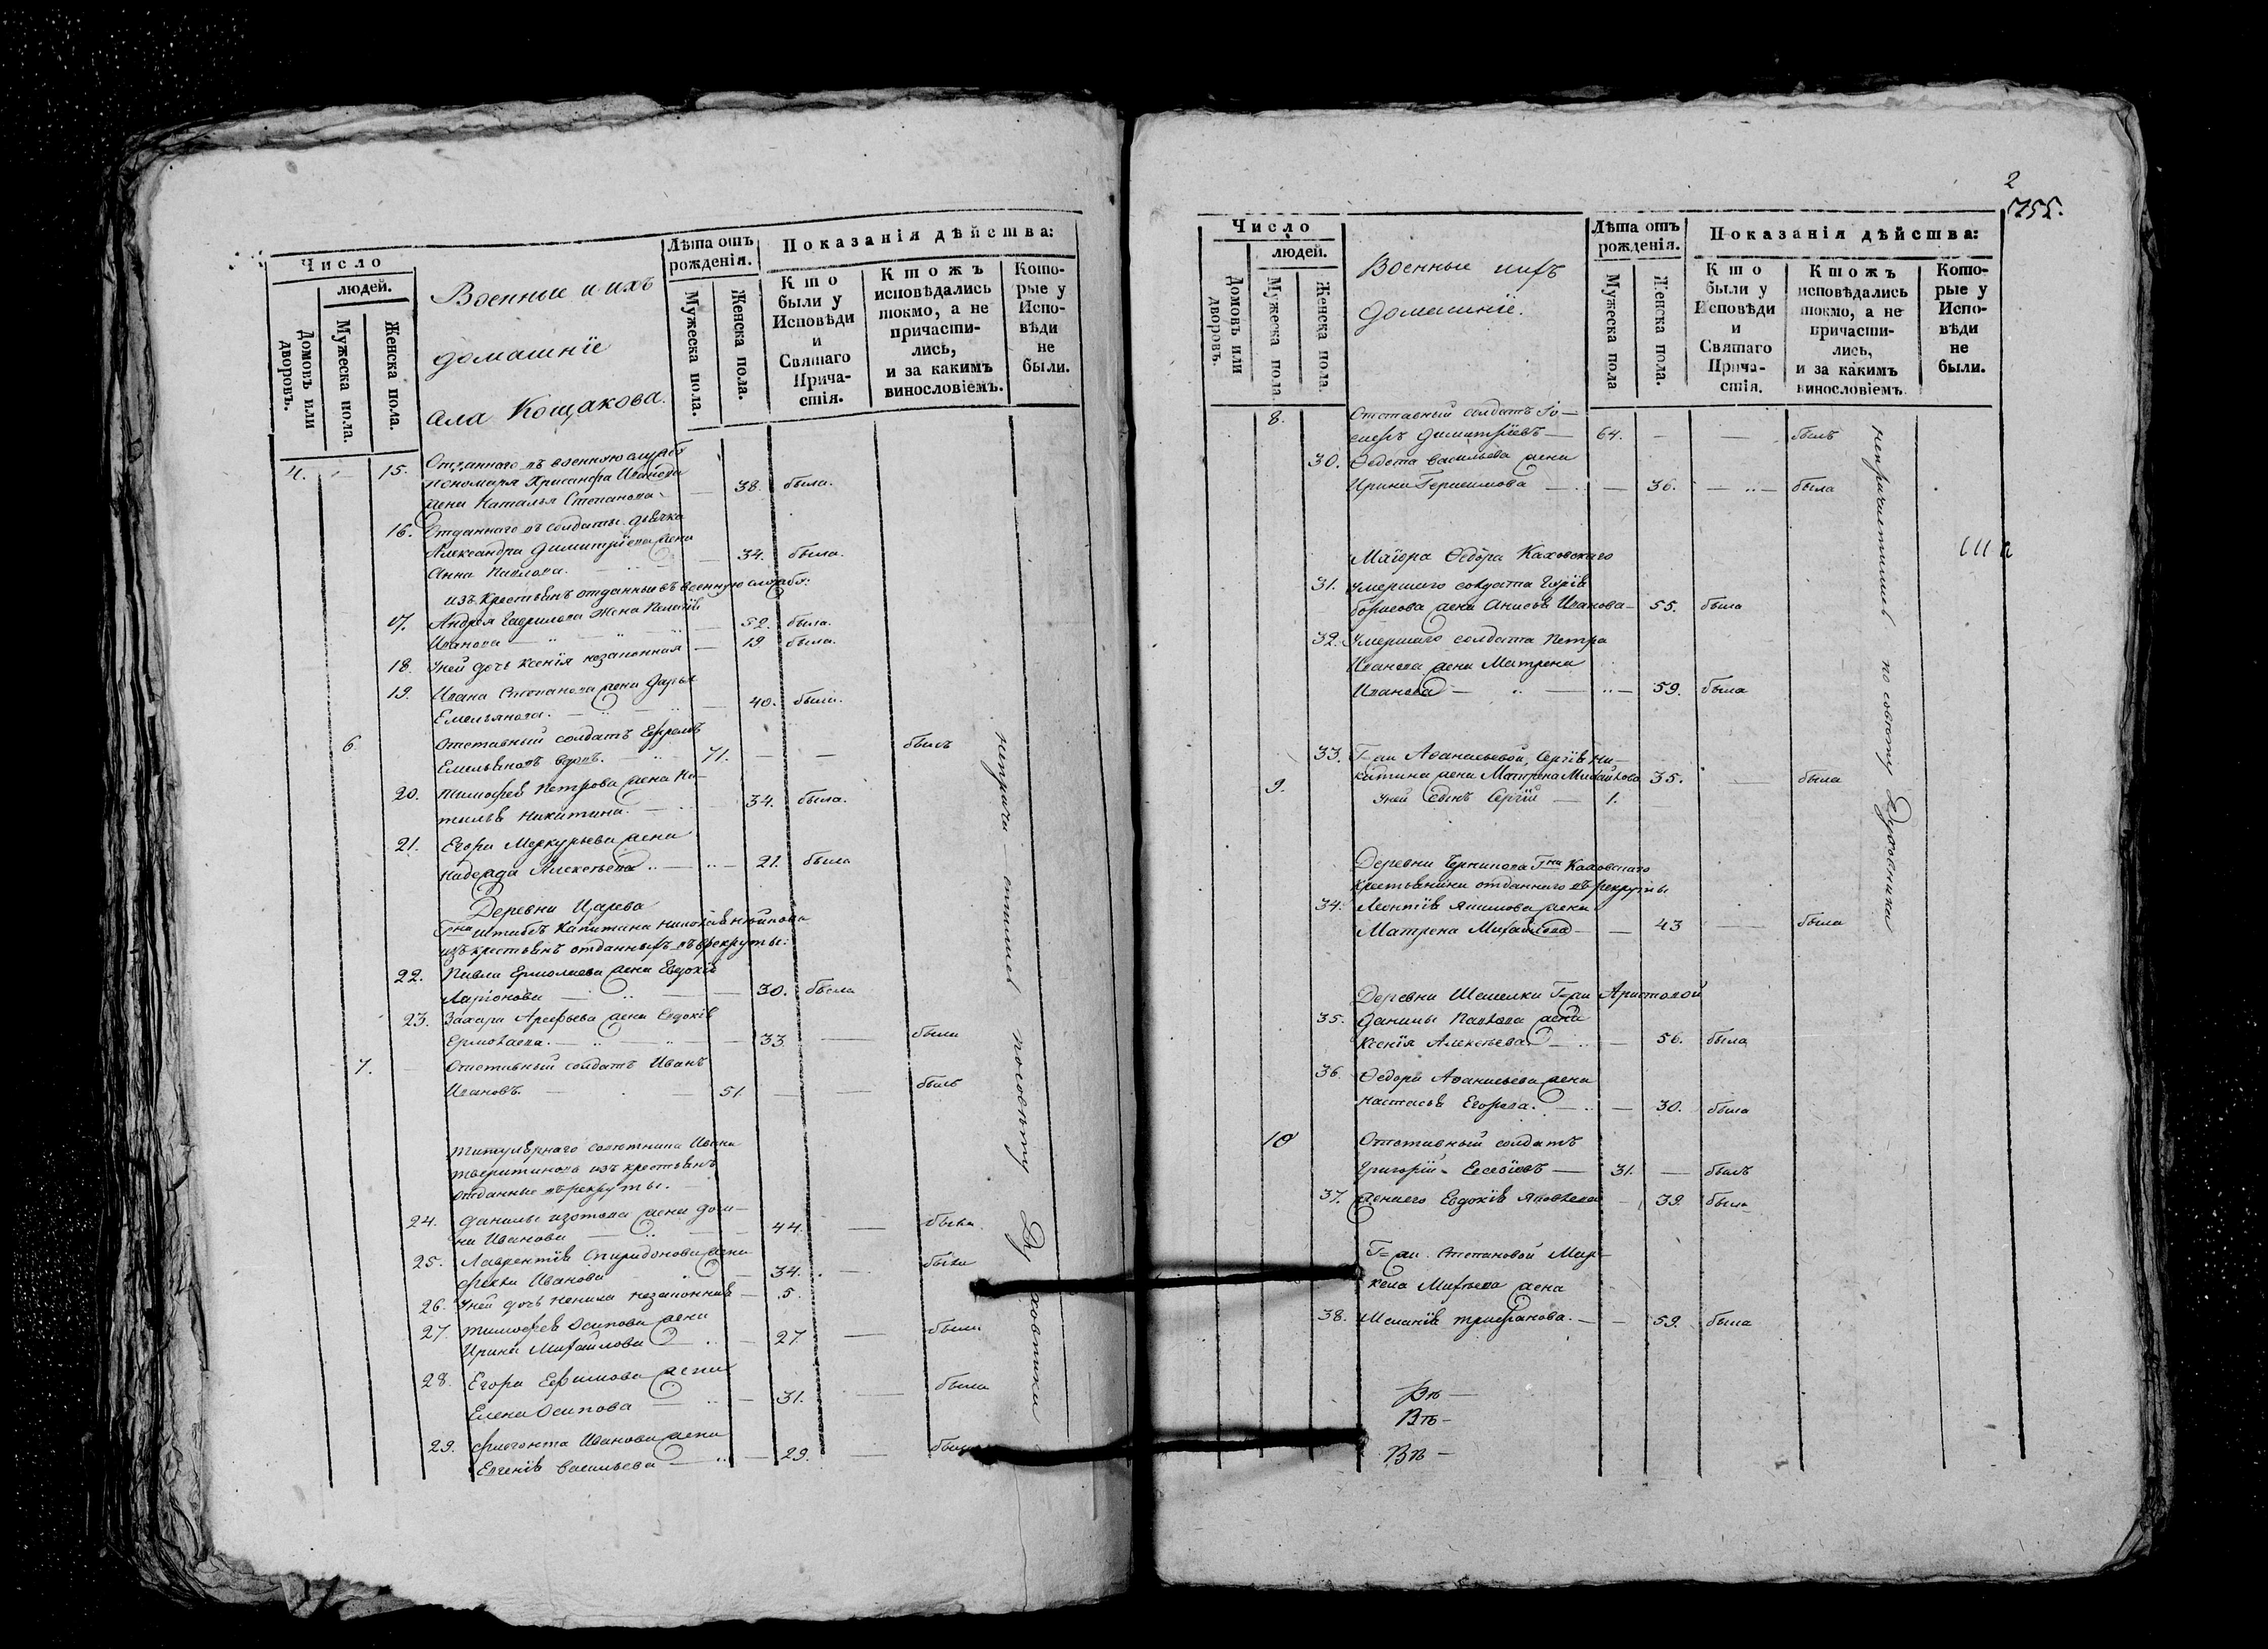 Число
людей.
Домовъ или дворовъ.
Мужеска пола.
Женска пола.
Военные и ихъ
домашніе
села Кощакова.
Лѣта отъ
рожденія.
Мужеска пола.
Женска пола.
Показанія дѣйства:
Кто
были у
Исповѣди
и
Святаго
Прича-
стія.
Ктожъ
исповѣдались
токмо, а не
причасти-
лись,
и за какимъ
винословіемъ.
Кото-
рые у
Испо-
вѣди
не
были.
4. 15. Отданнаго въ военную службу
пономаря
жена Наталья Степанова 38. была.
16. Отданнаго въ солдаты дьячка
Александра Димитріева жена
Анна Павлова. 34. была.
изъ крестьянъ отданные въ военную службу:
17. Андрея Гаврилова жена Пелагія
Иванова 52. была.
18. Уней дочь Ксенія незаконная 19. была.
19. Ивана Степанова жена Дарья
Емельянова. 40. была.
6 Отставный солдатъ Ефремъ
Емельяновъ вдовъ. 71. былъ
20. Тимофея Петрова жена На-
талья Никитина. 34. была.
21. Егора Меркурьева жена
Надежда Алексѣева 21. была
Деревни Царева
Г-на штабсъ Капитана Николая
изъ крестьянъ отданныхъ въ рекруты:
22. Павла Ермолаева жена Евдокія
Ларіонова 30. была
23. Захара Арефьева жена Евдокія
Ермолаева. 33. была
7. Отставный солдатъ Иванъ
Ивановъ. 51. былъ
Титулярнаго совѣтника Ивана
изъ крестьянъ
отданные въ рекруты.
24. Данилы Изотова жена Дом-
на Иванова 44. была
25. Лаврентія Спиридонова жена
Фекла Иванова 34. была
26. Уней дочь незаконная 5.
27. Тимофея Осипова жена
Ирина Михайлова 27 была
28. Егора Ефимова жена
Елена Осипова 31. была
29. Иванова жена
Евгенія Васильева 29. была
непричастились по совѣту Духовника
2
755.
Число
людей.
Домовъ или дворовъ.
Мужеска пола
Женска пола.
Военные ихъ
домашніе.
Лѣта отъ
рожденія.
Мужеска пола
Женска пола.
Показанія дѣйства:
Кто
были у
Исповѣди
и
Святаго
Прича-
стія.
Ктожъ
исповѣдались
токмо, а не
причасти-
лись,
и за какимъ
винословіемъ.
Кото-
рые у
Испо-
вѣди
не
были.
8. Отставный солдатъ Іо-
сифъ Димитріевъ 64. былъ
30. Ѳедота Васильева жена
Ирина Герасимова 36. была
Маіора Ѳедора Каховскаго
31. Умершаго солдата
Борисова жена Анисья Иванова 55. была
32. Умершаго солдата Петра
Иванова жена Матрена
Иванова 59. была
33. Г-жи Аѳанасьевой, Сергія Ни-
китина жена Матрена Михайлова 35. была
9. Уней сынъ Сергій 1.
Деревни Г-на Каховскаго
крестьянина отданнаго въ рекруты
34. Леонтія Якимова жена
Матрена Михайлова 43 была
Деревни Шешелки Г-жи Аристовой
35. Данилы Павлова жена
Ксенія Алексѣева 56. была
36. Ѳедора Аѳанасьева жена
Настасья Егорова. 30. была
10 Отставный солдатъ
Григорій Евсевіевъ 31. былъ
37. Жена его Евдокія Яковлева 39. была
Г-жи Степановой Мар-
кела Михѣева жена
38. Меланія Трифанова. 59. была
Въ —
Въ —
Въ —
непричастились по совѣту Духовника